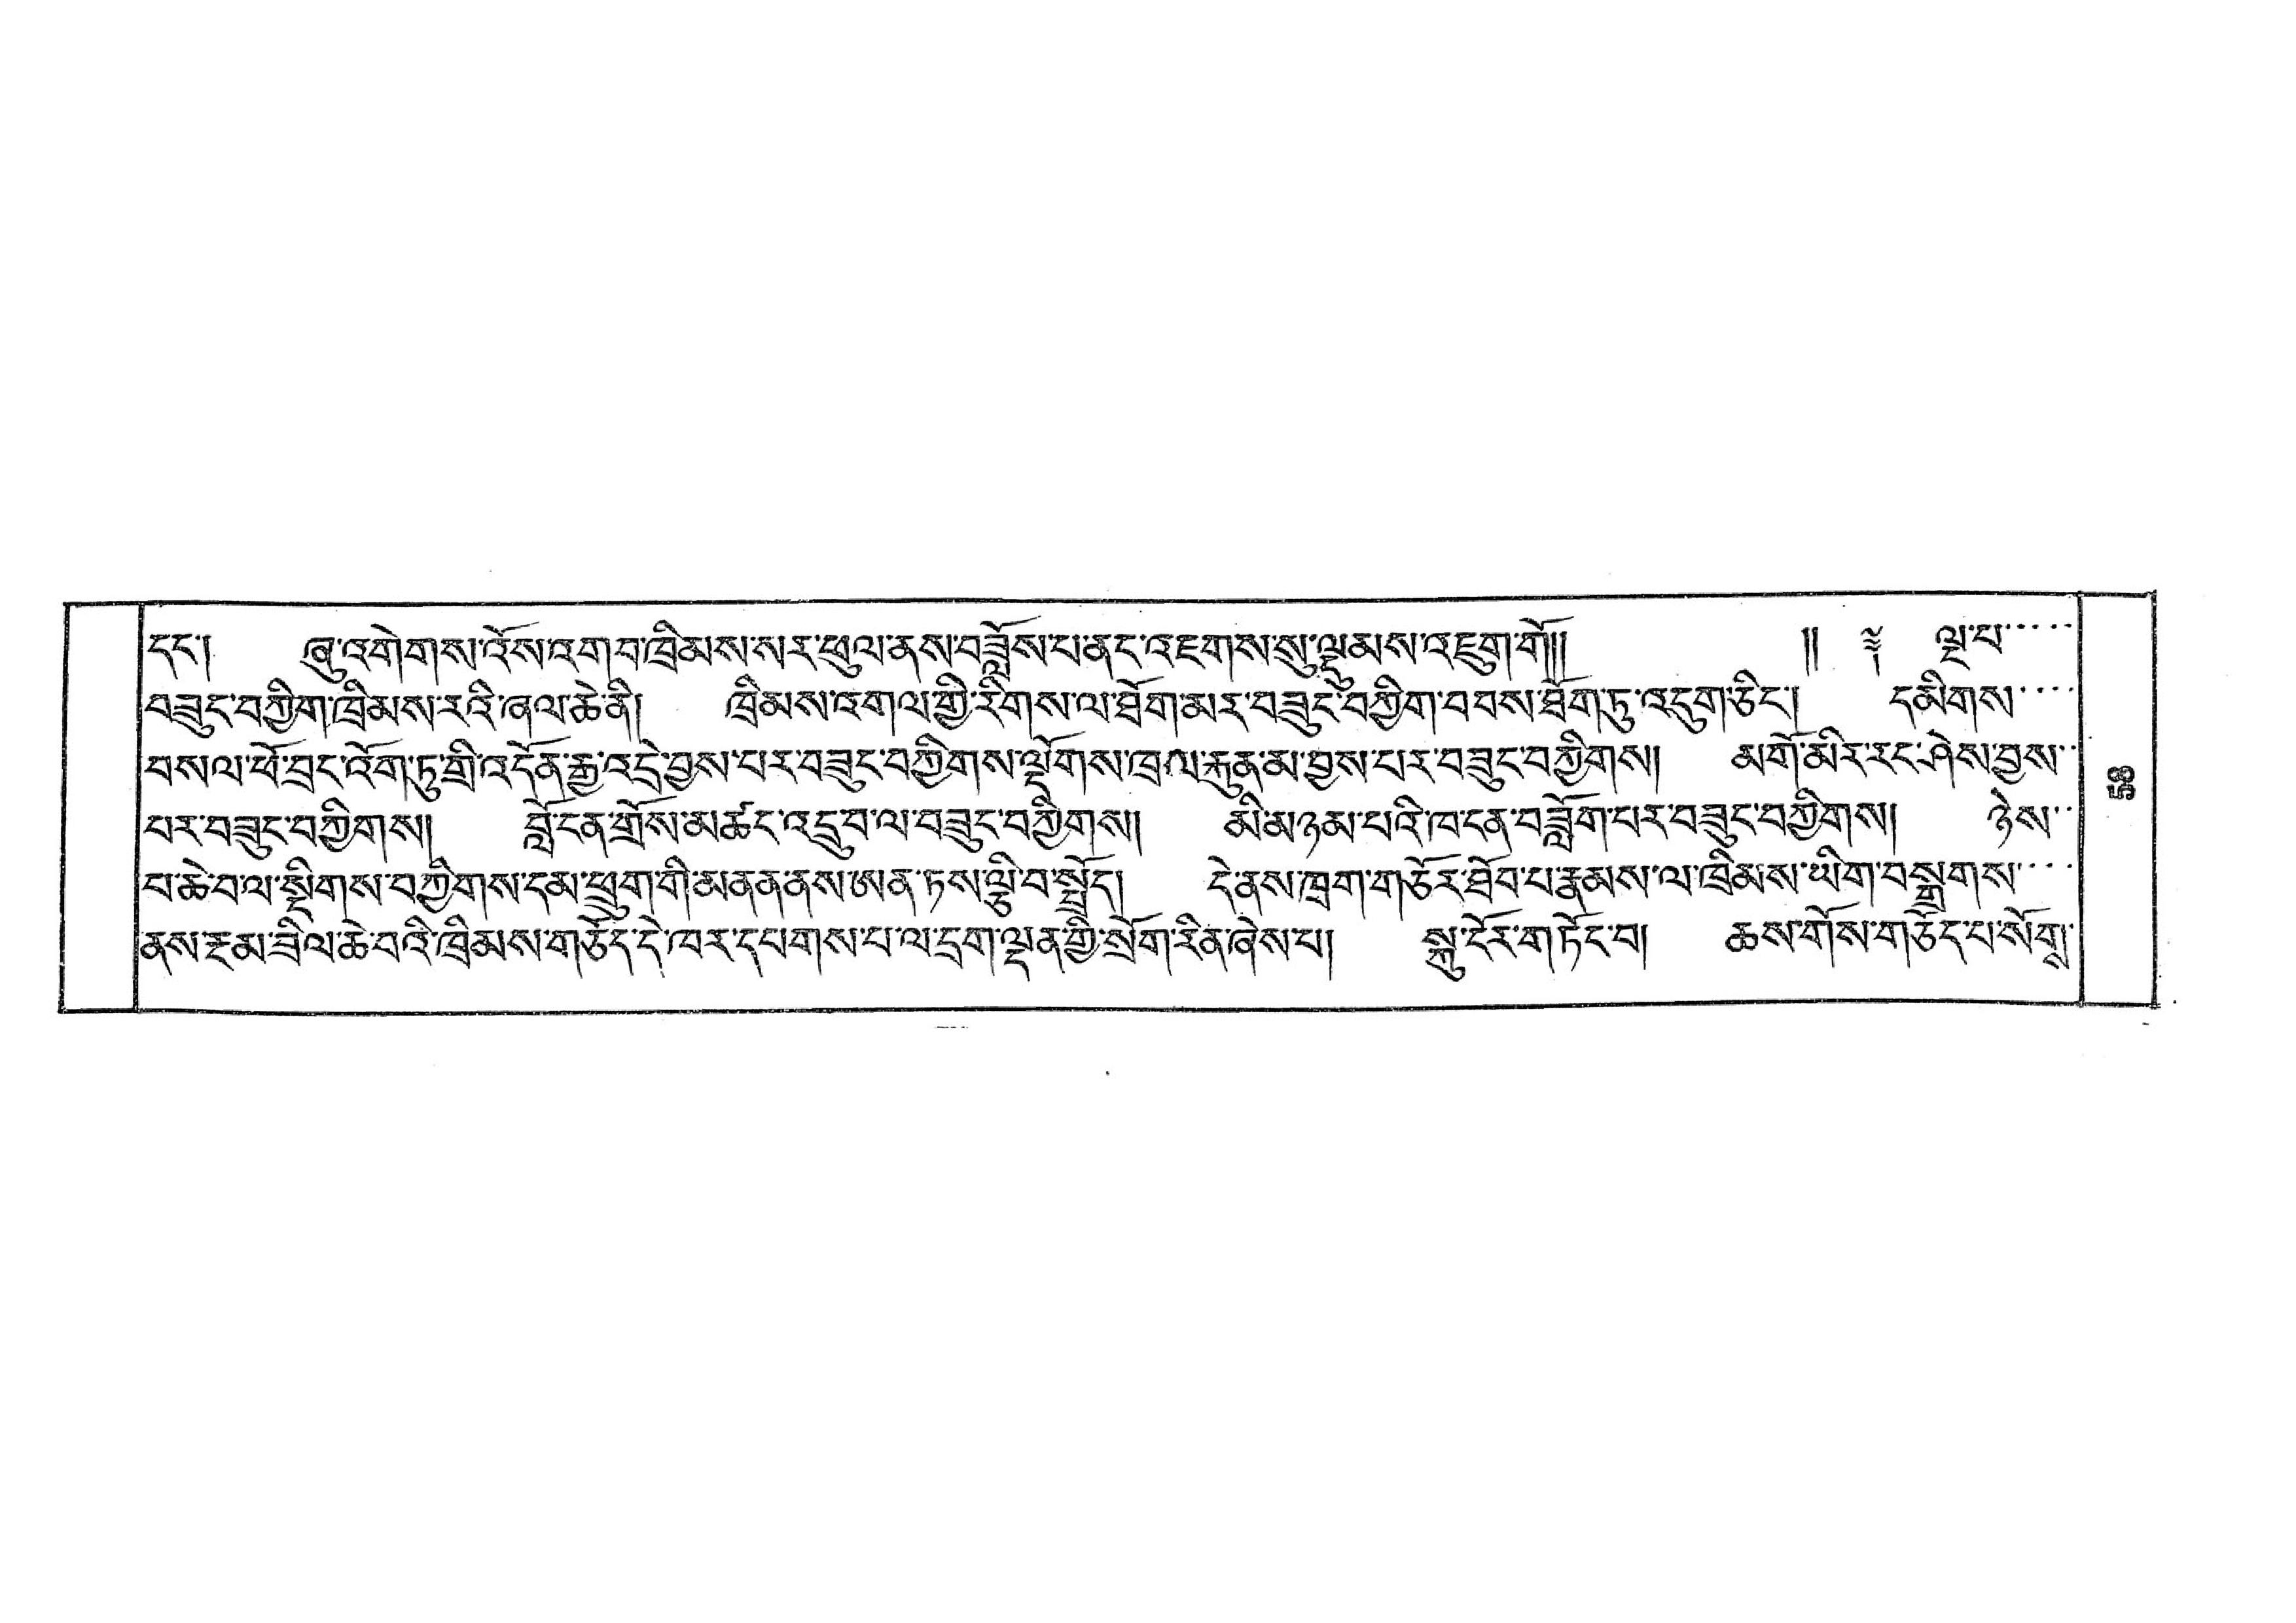 དང་། ཞུ་འགེགས་འོས་འགབ་ཁྲིམས་སར་ཕུལ་ནས་བཟློས་པ་ནང་འཇགས་སུ་ལྷུམས་འཇུག་གོ།། །། ༈ ལྔ་པ་་་་་
བཟུང་བཀྱིག་ཁྲིམས་རའི་ཞལ་ཆེ་ནི། ཁྲིམས་འགལ་གྱི་རིགས་ལ་ཐོག་མར་བཟུང་བཀྱིག་བབས་ཐོག་ཏུ་འདུག་ཅིང་། དམིགས་་་་
བསལ་ཕོ་བྲང་འོག་ཏུ་གྲི་འདོན་རྒྱ་འདྲེ་བྱས་པར་བཟུང་བཀྱིགས་ལྟོགས་ཁྲལ་རྐུན་མ་བྱས་པར་བཟུང་བཀྱིགས། མགོ་མིར་རང་ཤེས་བྱས་་
པར་བཟུང་བཀྱིགས། བློ་ངན་གྲོས་མཚང་འདྲུབ་ལ་བཟུང་བཀྱིགས། མི་མ་ཉམ་པའི་ཁ་དན་བཟློག་པར་བཟུང་བཀྱིགས། ཉེས་་
པ་ཆེ་བ་ལ་སྡིགས་བཀྱིགས་དམ་ཕྲུག་གི་མནན་ནས་ཨན་ཏས་ལྕི་བ་སྤྲོད། དེ་ནས་ཁྲག་གཅོར་ཐོབ་པ་རྣམས་ལ་ཁྲིམས་ཡིག་བསྒྲགས་་་་
ནས་རྔམ་ཟིལ་ཆེ་བའི་ཁྲིམས་གཅོད་དེ་ཁར་དཔགས་པ་ལ་དྲག་ལྡན་གྱི་སྲོག་རིན་ཞེས་པ། སྐུ་ངོར་གཏོང་བ། ཆས་གོས་གཅོད་པ་སོགས་